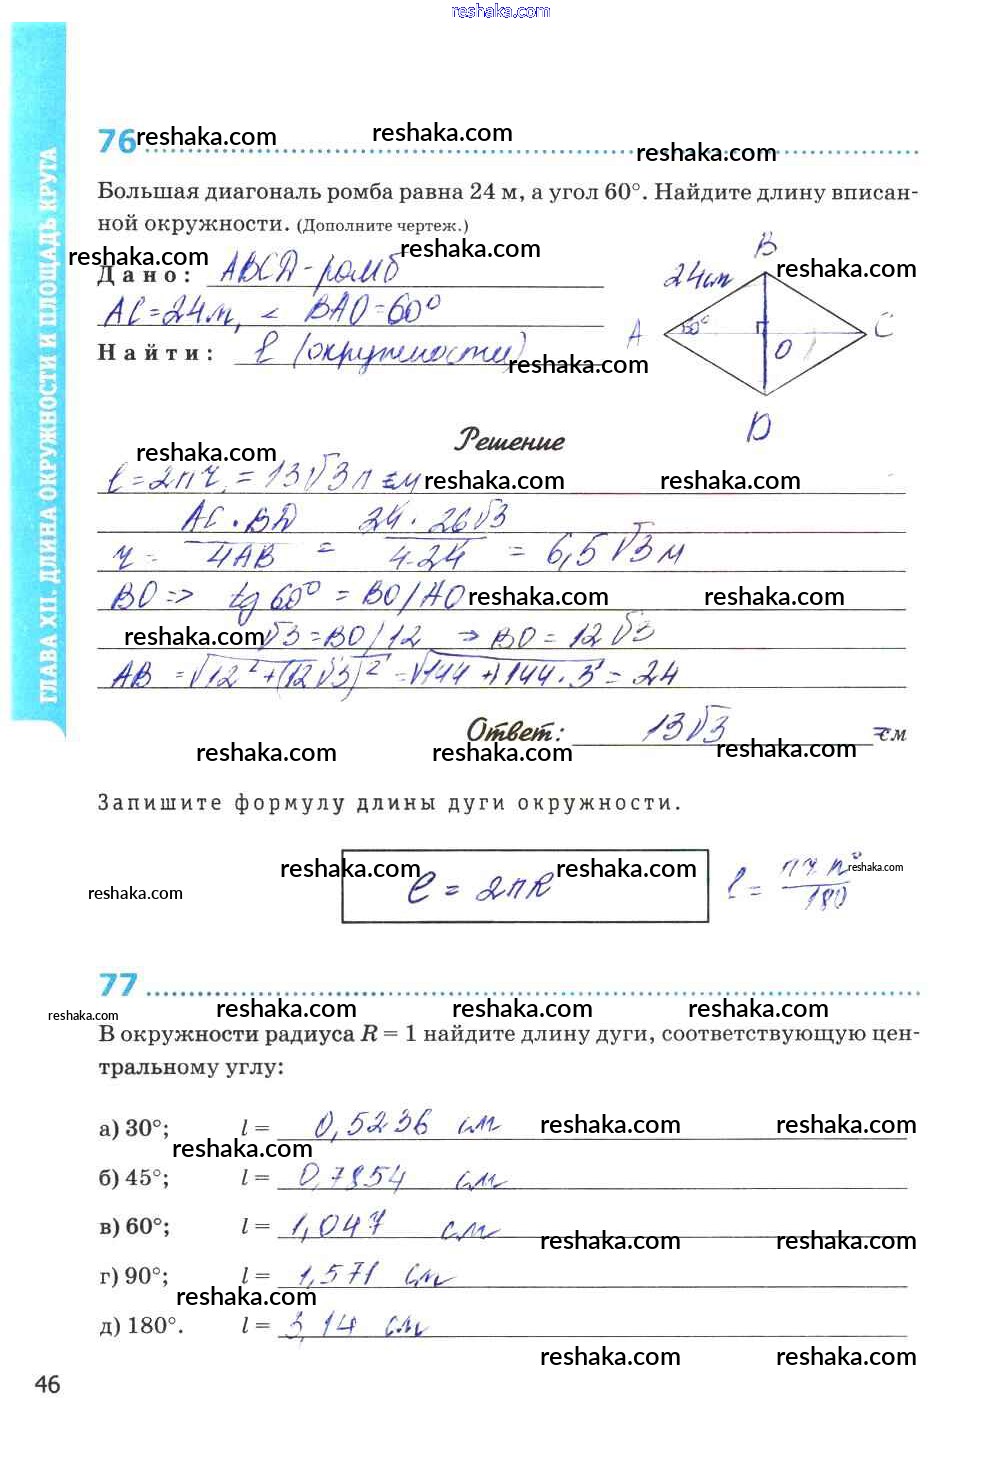 reshaka.com
76
reshaka.com reshaka.com reshaka.com
Большая диагональ ромба равна 24 м, а угол 60°. Найдите длину вписан-
ной окружности. (Дополните чертеж.)
reshaka.com reshaka.com reshaka.com
Дано: ABCD - ромб
AC = 24 м, < BAO = 60°
Найти: l (окружности)
reshaka.com
B
24 см
A 60° C
O
D
Решение
reshaka.com
l = 2πr = 13√3π см
reshaka.com reshaka.com
r = AC · BD / 4AB = 24 · 26√3 / 4·24 = 6,5√3 м
BO => tg 60° = BO/AO
reshaka.com reshaka.com
reshaka.com
√3 = BO/12 => BO = 12√3
AB = √12² + (12√3)² = √144 + 144 · 3 = 24
Ответ: 13√3 см
reshaka.com reshaka.com reshaka.com
Запишите формулу длины дуги окружности.
reshaka.com reshaka.com reshaka.com
reshaka.com
l = 2πR
l = πr n° / 180
77
reshaka.com reshaka.com reshaka.com reshaka.com
В окружности радиуса R = 1 найдите длину дуги, соответствующую цен-
тральному углу:
а) 30°; l = 0,5236 см
reshaka.com reshaka.com
reshaka.com
б) 45°; l = 0,7854 см
в) 60°; l = 1,047 см
reshaka.com reshaka.com
г) 90°; l = 1,571 см
reshaka.com
д) 180°. l = 3,14 см
reshaka.com reshaka.com
46
ГЛАВА XII. ДЛИНА ОКРУЖНОСТИ И ПЛОЩАДЬ КРУГА